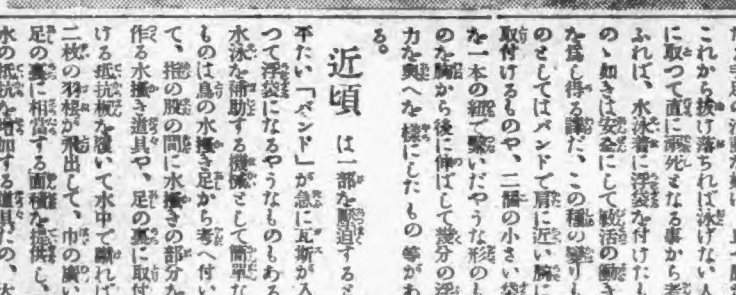 これから抜け落ちれば泳げない人
に取つて直に溺死となる事から考
ふれば、水泳着に浮袋を付けたも
のゝ如きは安全にして敏活の働き
を為し得る譯だ、この種の變りも
のとしてはバンドで肩に近い胸に
取付けるものや、二個の小さい袋
を一本の紐で繋いだやうな形のも
のを胸から後に伸ばして幾分の浮
力を與へを樣にしたもの等があ
る。
近頃は一部を壓迫すると
平たい「バンド」が急に瓦斯が入
つて浮袋になるやうなものもある
水泳を補助する機械として簡單な
ものは鳥の水搔き足から考へ付い
て、指の股の間に水搔きの部分を
作る水搔き道具や、足の裏に取付
ける抵抗板を履いて水中で蹴れば
二枚の羽根が飛出して、巾の廣い
足の裏に相當する面積を提供し、
水の抵抗を增加する道具だの、大